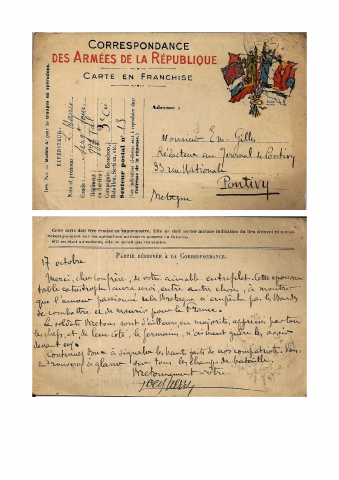 CORRESPONDANCE
DES ARMÉES DE LA RÉPUBLIQUE
CARTE EN FRANCHISE
Modèle A pour les troupes en opérations.
EXPÉDITEUR
Nom et prénom :
Grade :
Régiment
Secteur postal n° 13
Adresse :
Monsieur Em. Gilles
Rédacteur au Journal de Pontivy
33 rue Nationale
Pontivy
Bretagne
Cette carte doit être remise au vaguemestre. Elle ne doit porter aucune indication du lieu d'envoi ni aucun
renseignement sur les opérations militaires passées ou futures.
S'il en était autrement, elle ne serait pas transmise.
PARTIE RÉSERVÉE A LA CORRESPONDANCE.
17 octobre
Merci, cher confrère, de votre aimable entrefilet. Cette épouvan-
table catastrophe aura servi, entre autre chose, à montrer
que l'amour passionné de la Bretagne n'empêche pas les Bardes
de combattre et de mourir pour la France.
Les soldats Bretons sont d'ailleurs, en majorité, appréciés par tous
les chefs, et, de leur côté, les Germains n'aiment guère les avoir
devant eux.
Continuez donc à signaler les hauts faits de nos compatriotes. Vous
en trouverez à glaner sur tous les champs de bataille.
Bretonnement vôtre